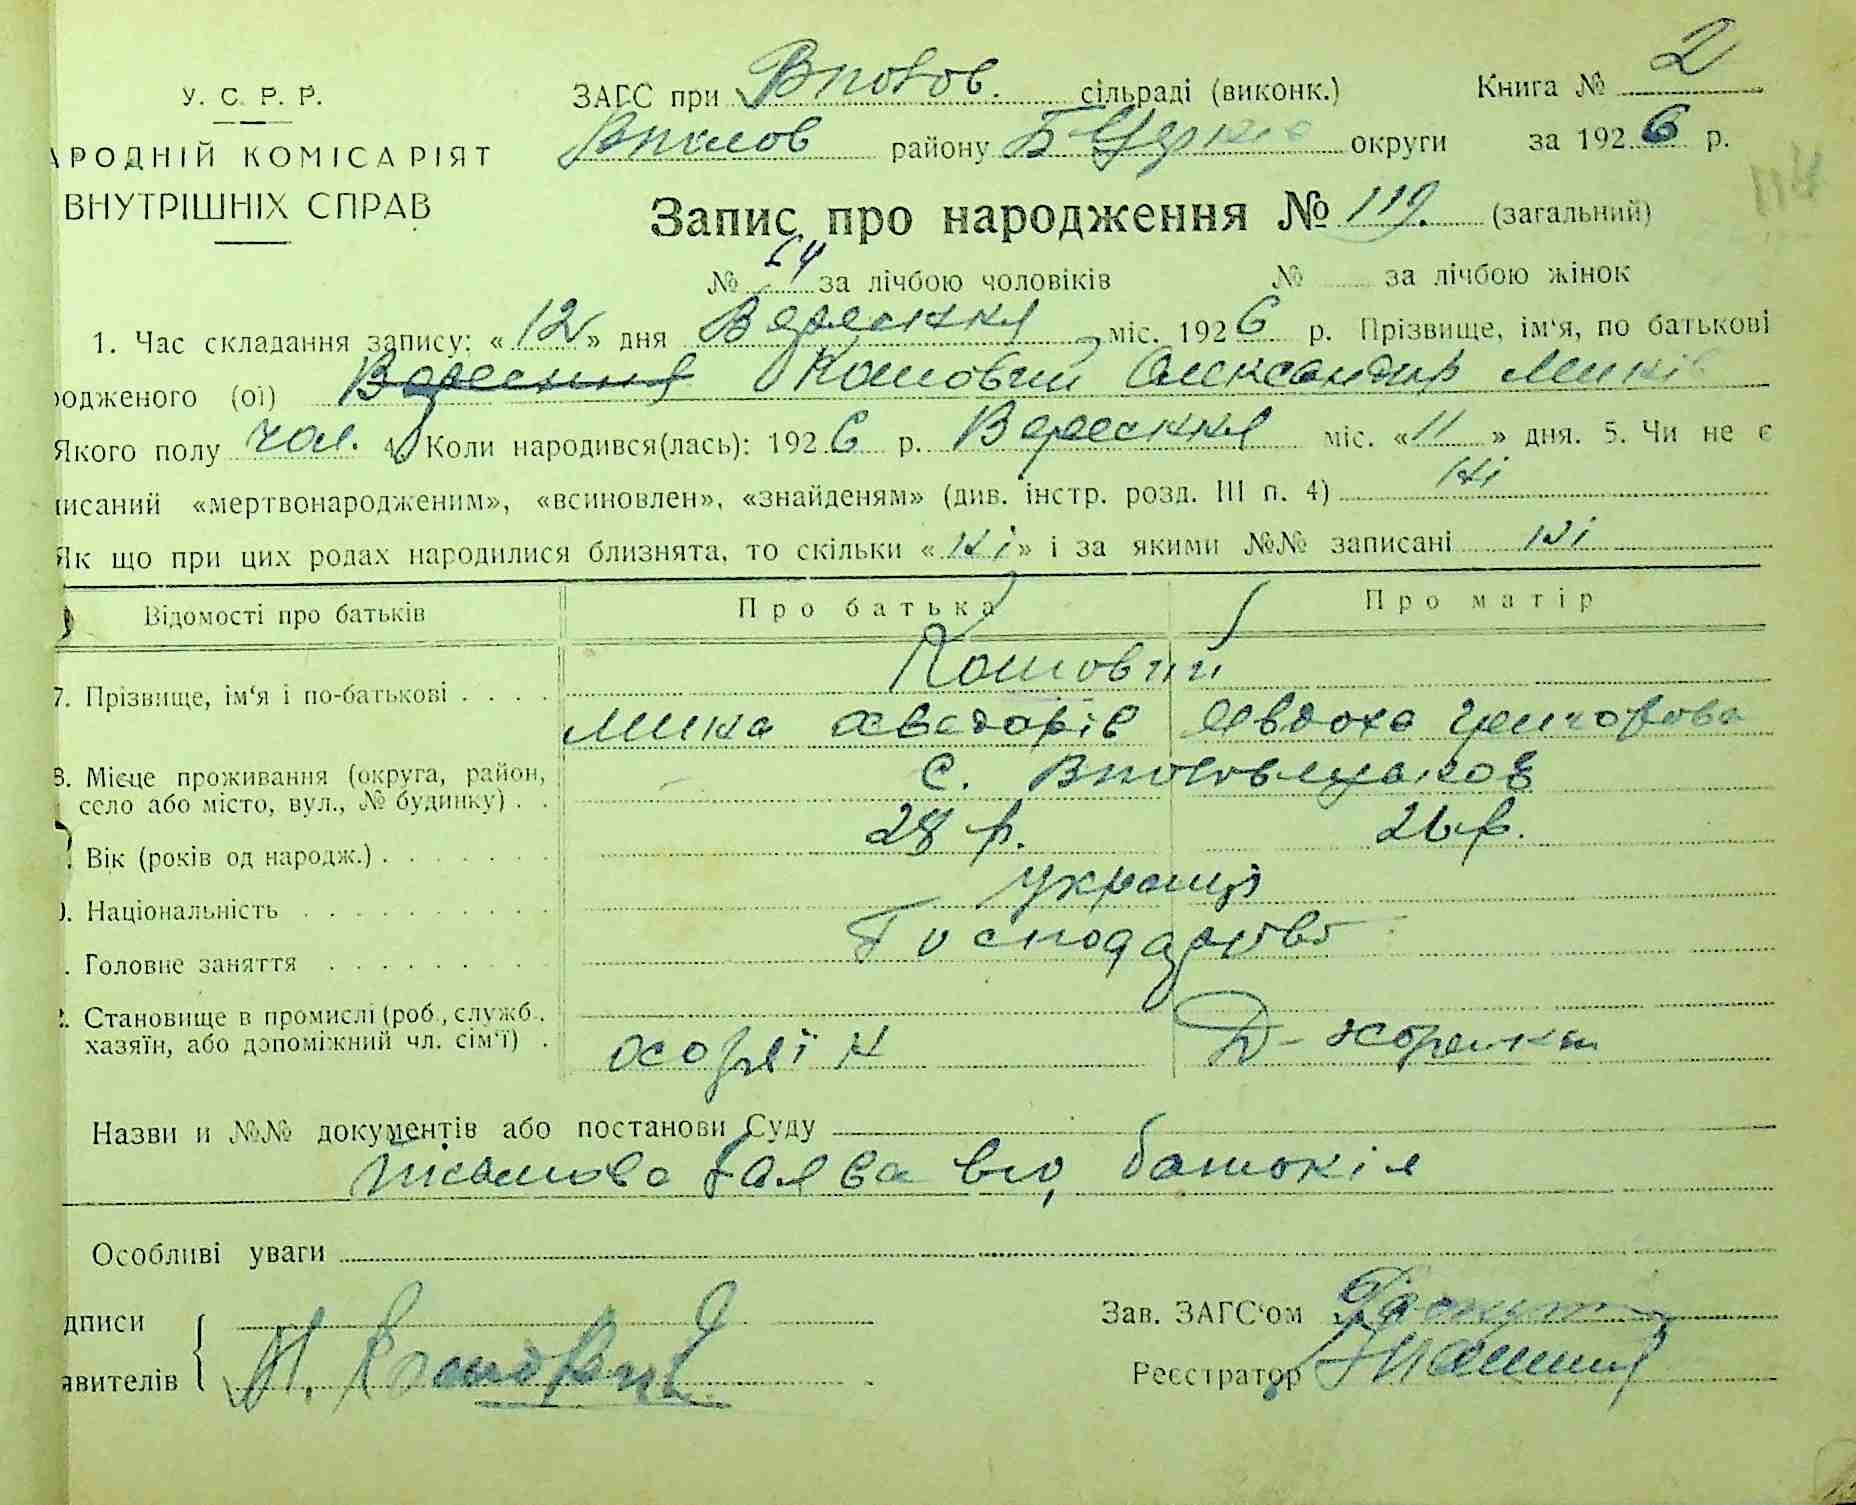 У. С. Р. Р.
АРОДНІЙ КОМІСАРІЯТ
ВНУТРІШНІХ СПРАВ
ЗАГС при сільраді (виконк.) Книга № 2
району Б Церкв округи за 1926 р.
Запис про народження № 119. (загальний)
№ 64 за лічбою чоловіків № за лічбою жінок
1. Час складання запису: «12» дня Вересння міс. 1926 р. Прізвище, ім'я, по батькові
одженого (ої) Вересння Кошовий Олександр Микі
Якого полу чол. 4. Коли народився(лась): 1926 р. Вересння міс. «11» дня. 5. Чи не є
исаний «мертвонародженим», «всиновлен», «знайденям» (див. інстр. розд. III п. 4) ні
Як що при цих родах народилися близнята, то скільки «ні» і за якими №№ записані ні
Відомості про батьків Про батька Про матір
7. Прізвище, ім'я і по-батькові Кошовий
Мика Хведорів Явдоха Григорова
8. Місце проживання (округа, район,
село або місто, вул., № будинку) с.
Вік (років од народж.) 28 р. 26 р.
Національність україці
Головне заняття Господарство
Становище в промислі (роб., служб.,
хазяїн, або допоміжний чл. сім'ї) хозяїн
Назви и №№ документів або постанови Суду
Письмова заява від батьків
Особливі уваги
дписи
явителів
Зав. ЗАГС'ом
Реєстратор